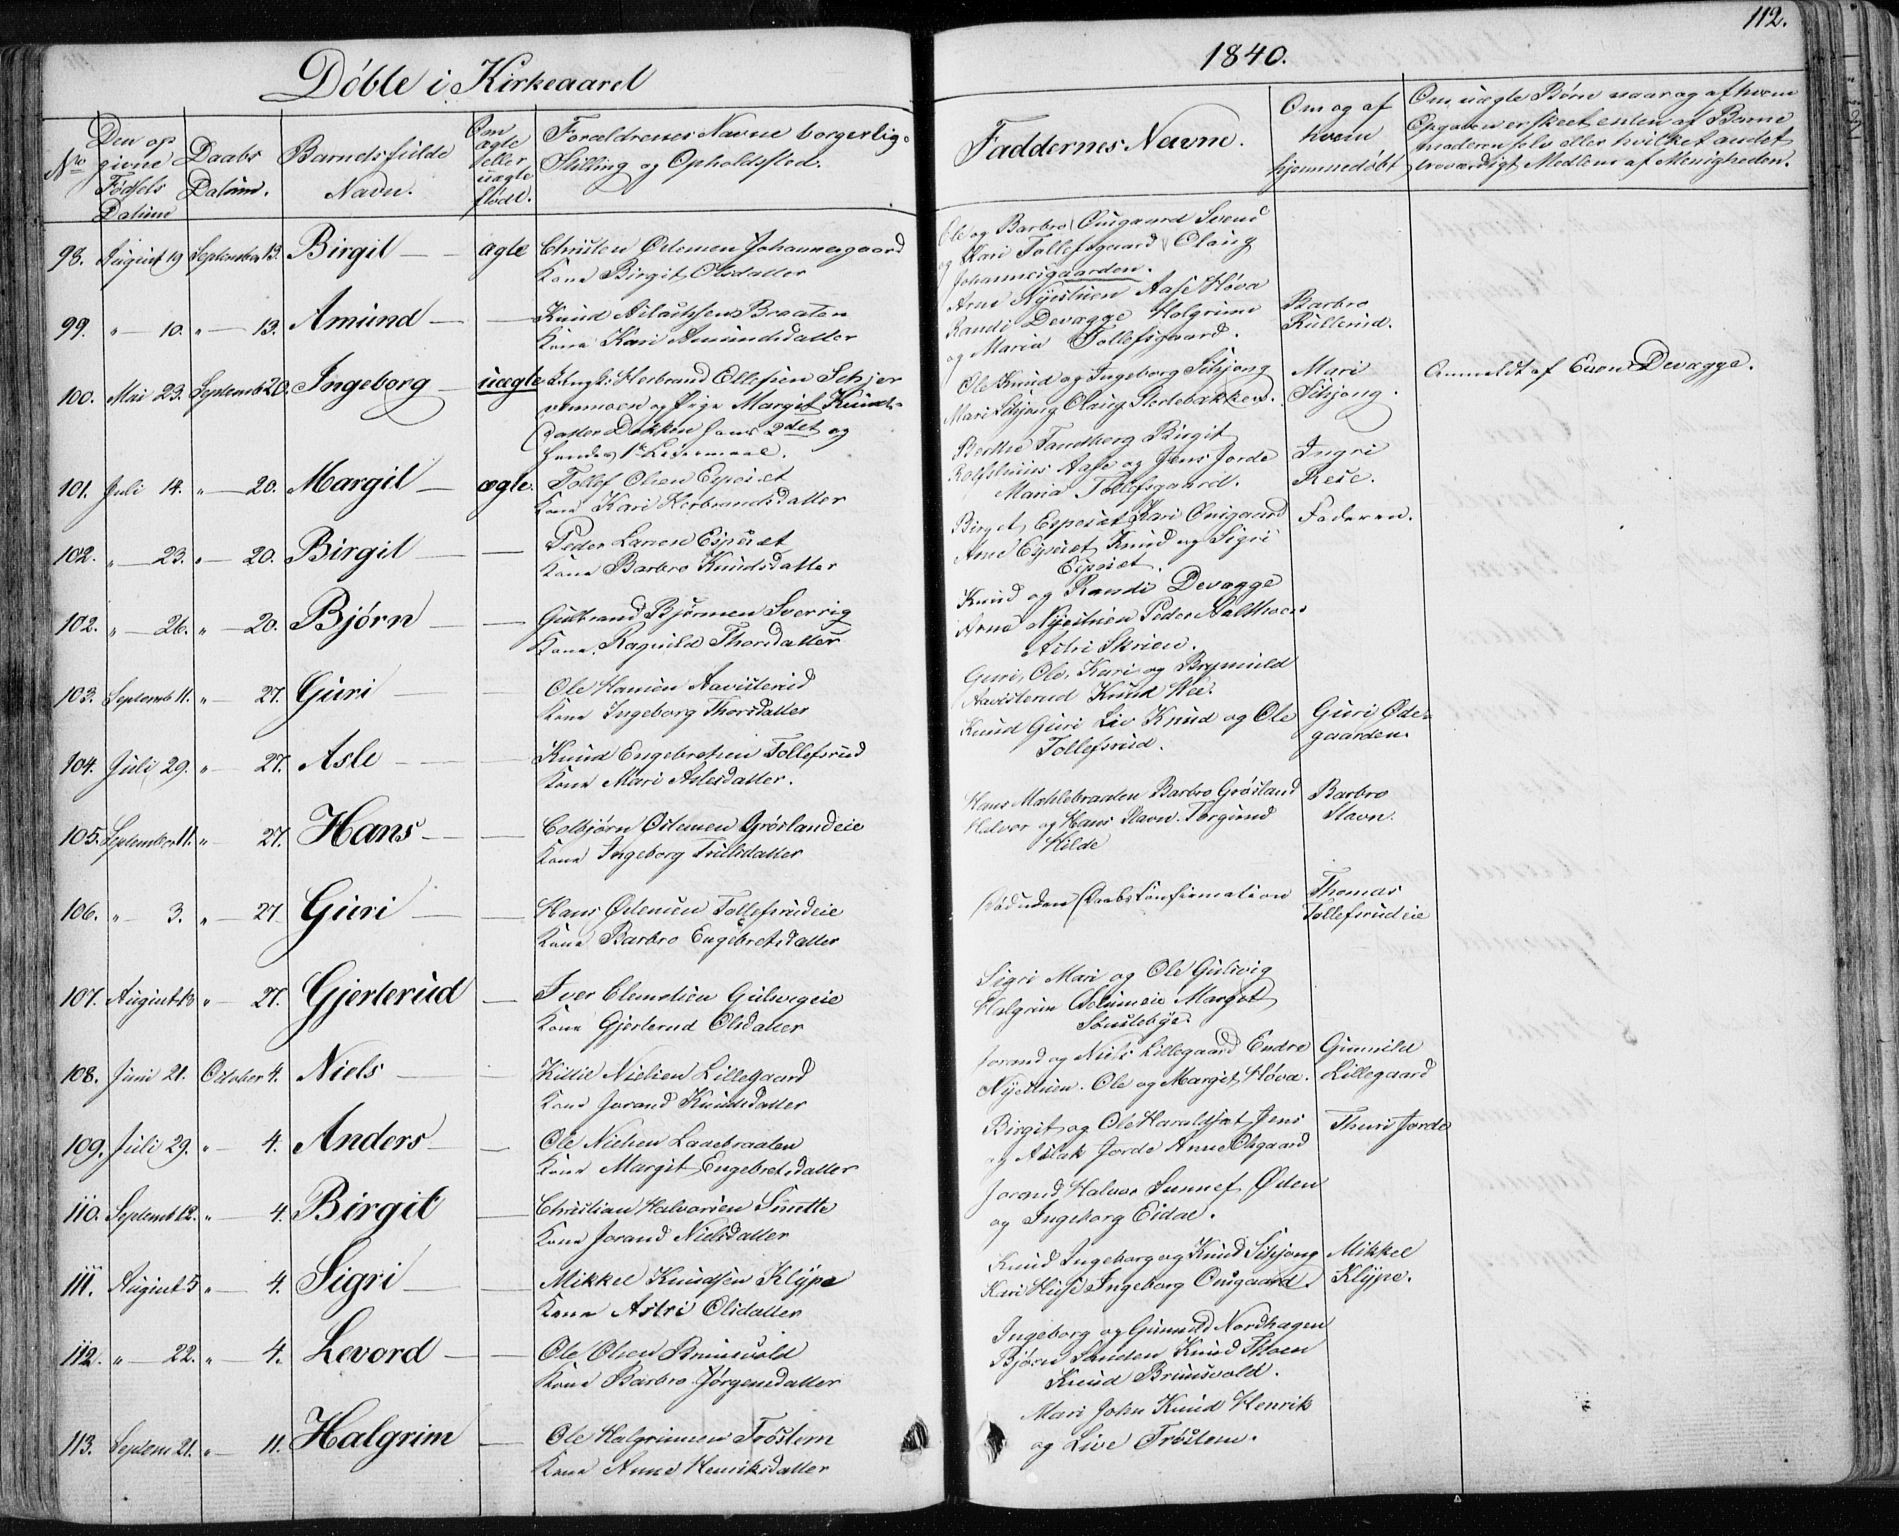 112.
Döbte i Kirkeaaret
1840.
No
Den op
givne
Födsels
Datum
Daabs
Datum.
Barnets fulde
Navn.
Om
ægte
eller
uægte
födt.
Forældrenes Navne borgerlig
Stilling og Opholdsted.
Faddernes Navn.
Om og af
hvem
hjemmedöbt
Om uægte Börn naar og af hvem
Opgaven er skeet enten af Barne
moderen selv eller hvilket andet
troværdigt Medlem af Menigheden.
98. August 19 September 13. Birgit — ægte Christen Ostensen Johannesgaard
Kone Birgit Olsdatter
Ole og Barbro Onsgaard Svend
og Kari Tollefsgaard Olaug
Johannesgaarden.
99. " — 10. " — 13. Amund — — Knud Aslachsens Braaten
Kone Kari Amundsdatter
Arne Nyestuen Aase Höva
Randi Devægge Halgrim
og Maria Tollefsgaard.
Barbro
Rullerud.
100. Mai 23. Septemb 20. Ingeborg — uægte Ungk: Herbrand Ellefsen Schjer
vemoen og Pige Margit Knuds-
datter Dokken hans 2det og
hendes 1te Leiermaal.
Ole Knud og Ingeborg Sihjong
Mari Sihjong Olaug Slettebakken.
Mari
Sihjong.
Anmeldt af Even Devægge.
101. Juli 14. " — 20. Margit — ægte. Tollef Olsen Espeset
Kone Kari Herbrandsdatter
Berthe Sandberg Birgit
Rolfshuus Aase og Jens Jorde
Maria Tollefsgaard.
Ingri
Rese.
102. " — 23. " — 20. Birgit — — Peder Larsen Espeset
Kone Barbro Knudsdatter
Birget Espeset Kari Onsgaard
Arne Espeset Knud og Sigri
Espeset.
Faderen.
102. " — 26. " — 20. Björn — — Gulbrand Björnsen Sverrig
Kone Ragnild Thorsdatter
Knud og Randi Devægge
Arne Nyestuen Peder
Astri Skrien.
103. Septemb 11. " — 27. Guri — — Ole Hansen Aavesterud
Kone Ingeborg Thorsdatter
Guri, Ole, Kari og Brynuild
Aavesterud Knud Hee.
104. Juli 29. " — 27. Asle — — Knud Engebretsen Tollefsrud
Kone Mari Aslesdatter.
Knud Guri Liv Knud og Ole
Tollefsrud.
Guri Öde-
gaarden.
105. September 11. " — 27. Hans — — Colbjörn Ostensen Gröslandeie
Kone Ingeborg Trulsdatter
Hans Mahlebraaten Barbro Grösland
Halvor og Hans Stavn. Torgund
Hilde
Barbro
Stavn.
106. " — 3. " — 27. Guri — — Hans Ostensen Tollefsrudeie
Kone Barbro Engebretsdatter
Död uden Daabskonfirmation
Thomas
Tollefsrudeie
107. August 13 " — 27. Gjerterud — Iver Clemetsen Gulsvigeie
Kone Gjerterud Olsdatter
Sigri Mari og Ole Gulsvig
Halgrim Solumeie Margit
Sönstebye
108. Juni 21. October 4. Niels — — Kittil Nielsen Lillegaard
Kone Jorand Knudsdatter
Jorand og Niels Lillegaard Endre
Nyestuen. Ole og Margit Höva.
Gunnild
Lillegaard
109. Juli 29. " — 4. Anders — — Ole Nielsen Ladebraaten
Kone Margit Engebretsdatter
Birgit og Ole Haraldset Jens
og Aslak Jorde Anne Olsgaard
Thuri Jorde
110. Septemb 12. " — 4. Birgit — Christian Halvorsen Smette
Kone Jorand Nielsdatter
Jorand Halvor Sunnef Öden
og Ingeborg Eidal.
111. August 5 " — 4. Sigri — — Mikkel Knudsen Klype
Kone Astri Olsdatter
Knud Ingeborg og Knud Sihjong
Kari Huse Ingeborg Onsgaard
Mikkel
Klype.
112. " — 22. " — 4. Levord — — Ole Olsen Brunsvold
Kone Barbro Jörgensdatter
Ingeborg og Gunnild Nordhagen
Björn Sanden Knud Thoen
Knud Brunsvold.
113. Septem 21. " — 11. Halgrim — Ole Halgrimsen Tröstem
Kone Anne Henriksdatter
Mari John Knud Henrik
og Live Tröstem.